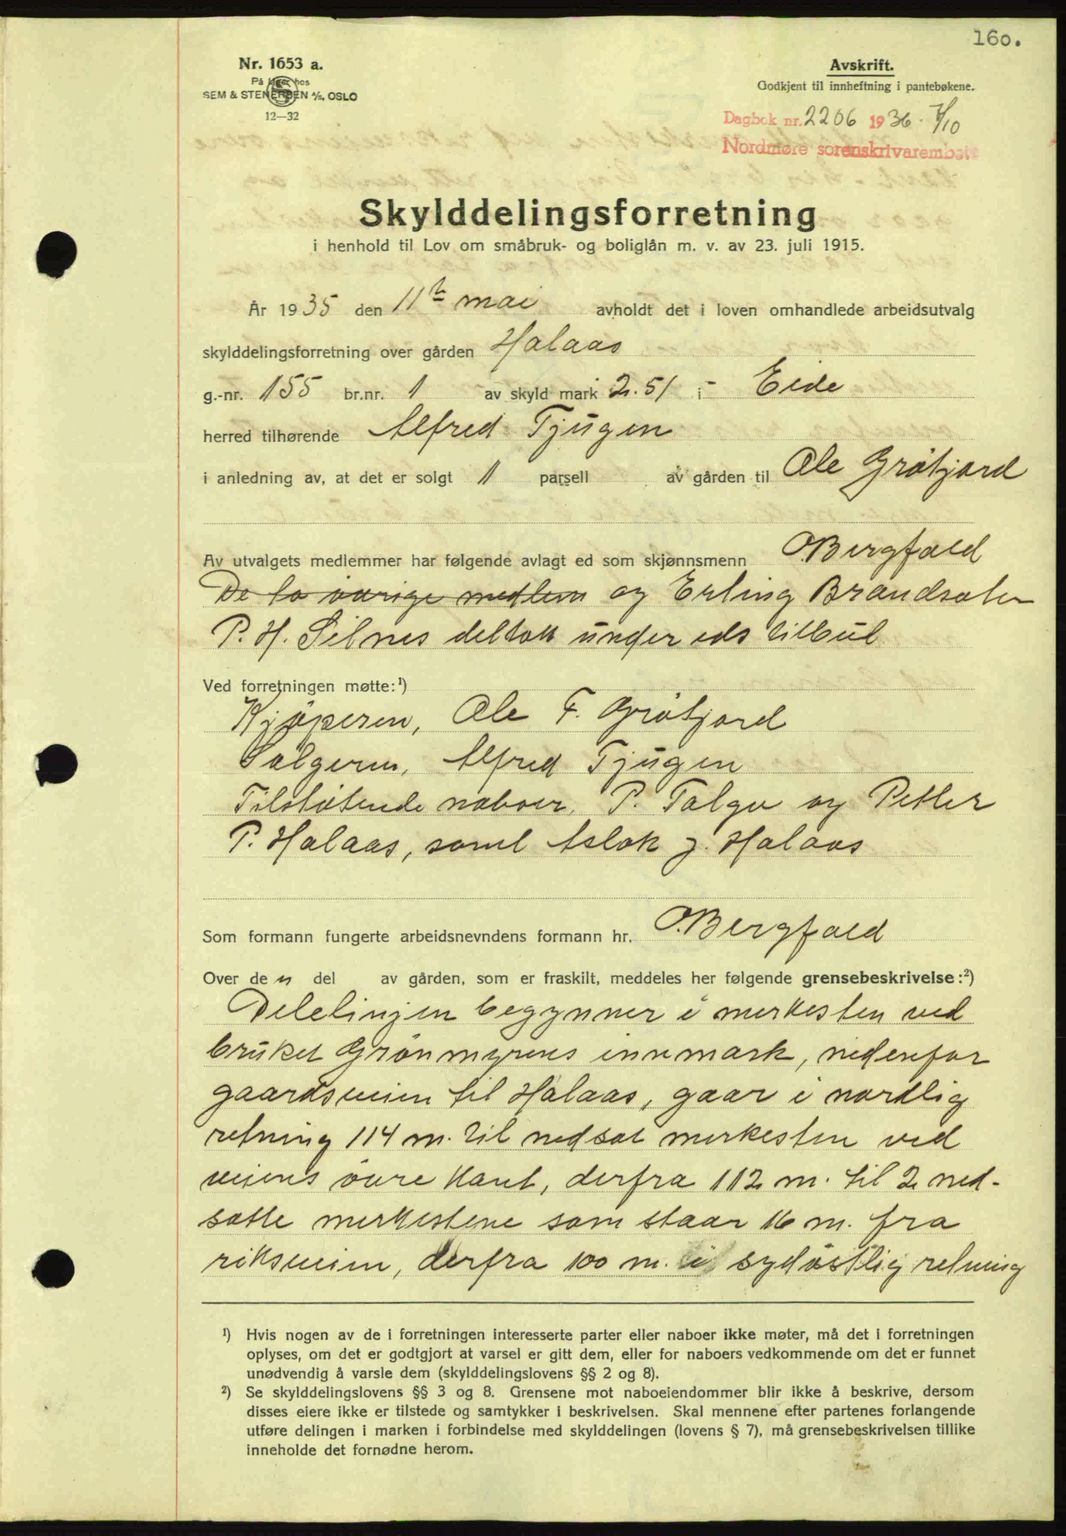 160.
Nr. 1653 a.
På lager hos
SEM & STENERSEN A/S, OSLO
12—32
Avskrift.
Godkjent til innheftning i pantebøkene.
Dagbok nr. 2206 1936 7/10
Nordmøre sorenskrivarembete
Skylddelingsforretning
i henhold til Lov om småbruk- og boliglån m. v. av 23. juli 1915.
År 1935 den 11te mai avholdt det i loven omhandlede arbeidsutvalg
skylddelingsforretning over gården Halaas
g.-nr. 155 br.nr. 1 av skyld mark 2.51 i Eide
herred tilhørende Alfred Tjugen
i anledning av, at det er solgt 1 parsell av gården til Ole Gröfjord
Av utvalgets medlemmer har følgende avlagt ed som skjønnsmenn O. Bergfald
De to övrige medlem og Erling Brandsæter
P. H. Silnes deltok under eds tilbud
Ved forretningen møtte:¹)
Kjöperen, Ole F. Gröfjord
Sælgeren, Alfred Tjugen
Tilstötende naboer, P. Talgø og Petter
P. Halaas, samt Aslak J. Halaas
Som formann fungerte arbeidsnevndens formann hr. O. Bergfald
Over den del av gården, som er fraskilt, meddeles her følgende grensebeskrivelse:²)
Delelinjen begynner i merkesten ved
bruket Grönmyrens innmark, nedenfor
gaardsveien til Halaas, gaar i nordlig
retning 114 m. til nedsat merkesten ved
veiens övre kant, derfra 112 m. til 2 ned-
satte merkestene som staar 16 m. fra
riksveien, derfra 100 m. i sydöstlig retning
¹) Hvis nogen av de i forretningen interesserte parter eller naboer ikke møter, må det i forretningen
oplyses, om det er godtgjort at varsel er gitt dem, eller for naboers vedkommende om det er funnet
unødvendig å varsle dem (skylddelingslovens §§ 2 og 8).
²) Se skylddelingslovens §§ 3 og 8. Grensene mot naboeiendommer blir ikke å beskrive, dersom
disses eiere ikke er tilstede og samtykker i beskrivelsen. Skal mennene efter partenes forlangende
utføre delingen i marken i forbindelse med skylddelingen (lovens § 7), må grensebeskrivelsen tillike
inneholde det fornødne herom.